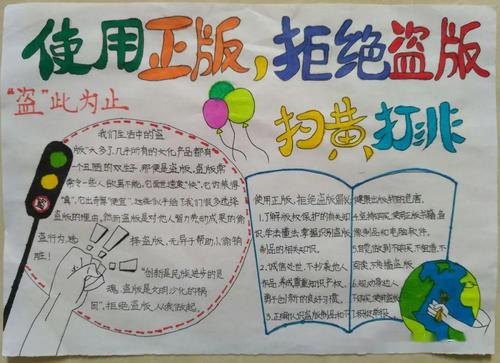 使用正版，拒绝盗版
"盗"此为止
扫黄打非
我们生活中的盗
版"太多了,几乎所有的文化产品都有
一个丑陋的双生子,那便是盗版,盗版常
常令一些人欲罢不能,它面世速度"快",它的装帧
"真",它出奇"便宜",这些似乎给了我们很多选择
盗版的理由,然而盗版是对他人智力劳动成果的偷
盗行为,选择盗版,无异于帮助小偷销
赃!
"创新是民族进步的灵
魂,盗版是文明沙化的祸
因",拒绝盗版,从我做起。
使用正版,拒绝盗版
1.了解版权保护的相关知
识,学法懂法,掌握识别盗版
制品的相关知识。
2.诚信处世,不抄袭他人
作品,养成尊重知识产权,
勇于创新的良好习惯。
3.正确认识盗版制品和不
健康出版物的危害。
4.坚持购买、使用正版
像制品和电脑软件。
5.自觉做到不购买、不制造、不
阅读、不传播盗版
6.
不购买、使用盗版